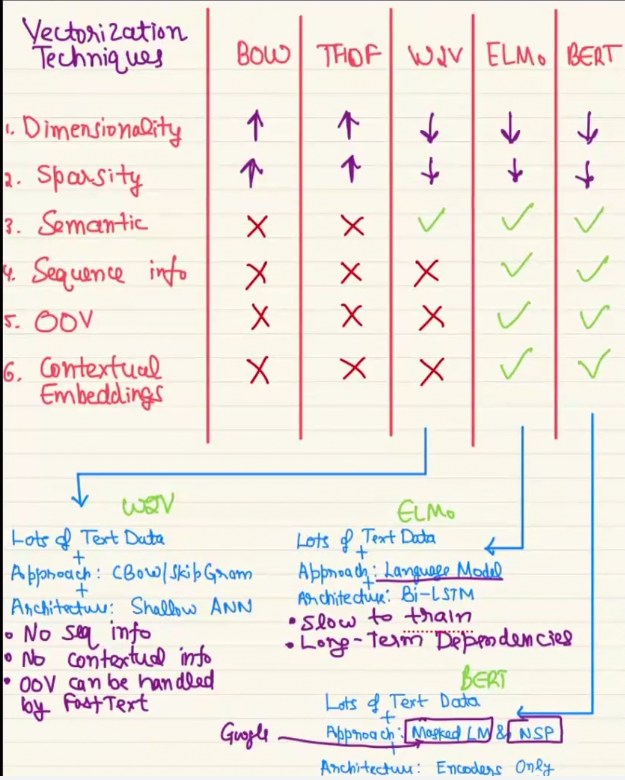 Vectorization
Techniques
BOW TFIDF W2V ELMo BERT
1. Dimensionality ↑ ↑ ↓ ↓ ↓
2. Sparsity ↑ ↑ ↓ ↓ ↓
3. Semantic ✗ ✗ ✓ ✓ ✓
4. Sequence info ✗ ✗ ✗ ✓ ✓
5. OOV ✗ ✗ ✗ ✓ ✓
6. Contextual
Embeddings ✗ ✗ ✗ ✓ ✓
W2V
Lots of Text Data
+
Approach: CBOW/SkipGram
+
Architecture: Shallow ANN
• No seq info
• No contextual info
• OOV can be handled
by FastText
ELMo
Lots of Text Data
+
Approach: Language Model
+
Architecture: Bi-LSTM
• Slow to train
• Long-Term Dependencies
BERT
Lots of Text Data
+
Google
Approach: Masked LM & NSP
+
Architecture: Encoders Only